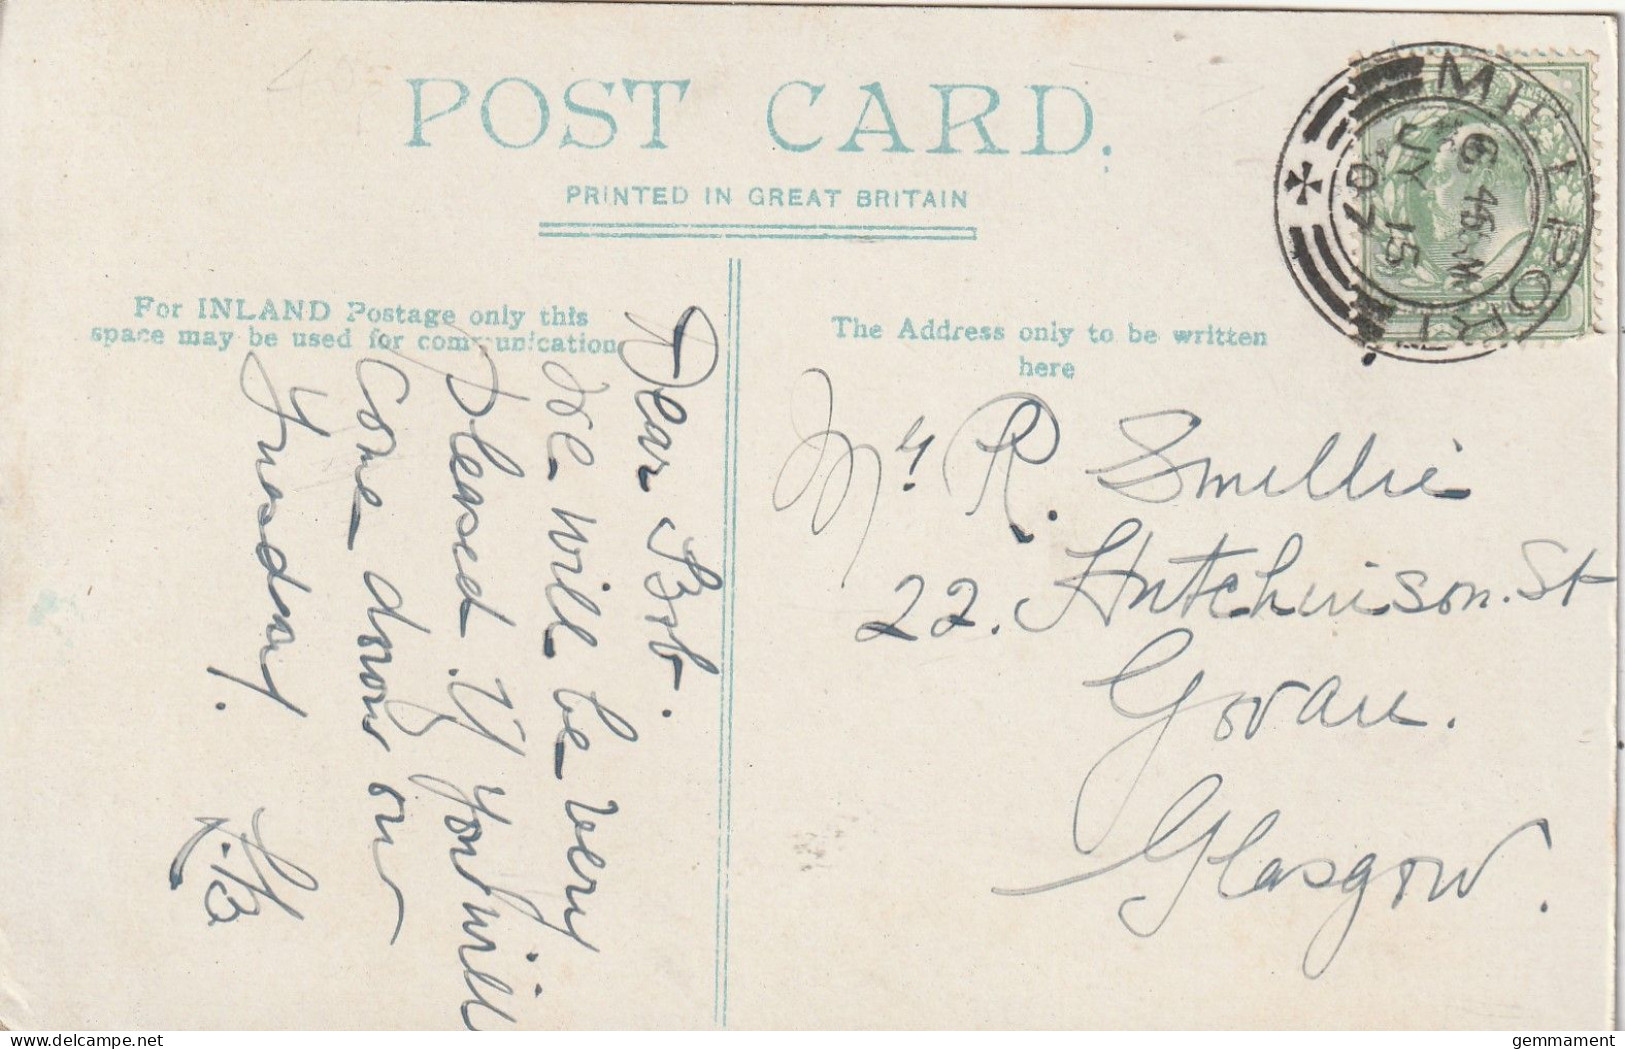 POST CARD.
PRINTED IN GREAT BRITAIN
For INLAND Postage only this
space may be used for communication
The Address only to be written
here
MILLPORT
6 45 PM
JY 15
07
Dear Bob.
We will be very
pleased if you will
come down on
Tuesday.
Mr R. Smellie
22. Hutchinson. St
Govan.
Glasgow.
gemmament